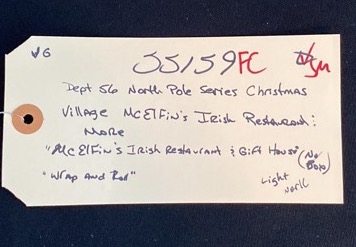 VG
SS159FC VSM
Dept 56 North Pole Series Christmas
Village McElfin's Irish Restaurant:
More
"McElfin's Irish Restaurant & Gift House" (No Box)
"Wrap and Roll"
Light works